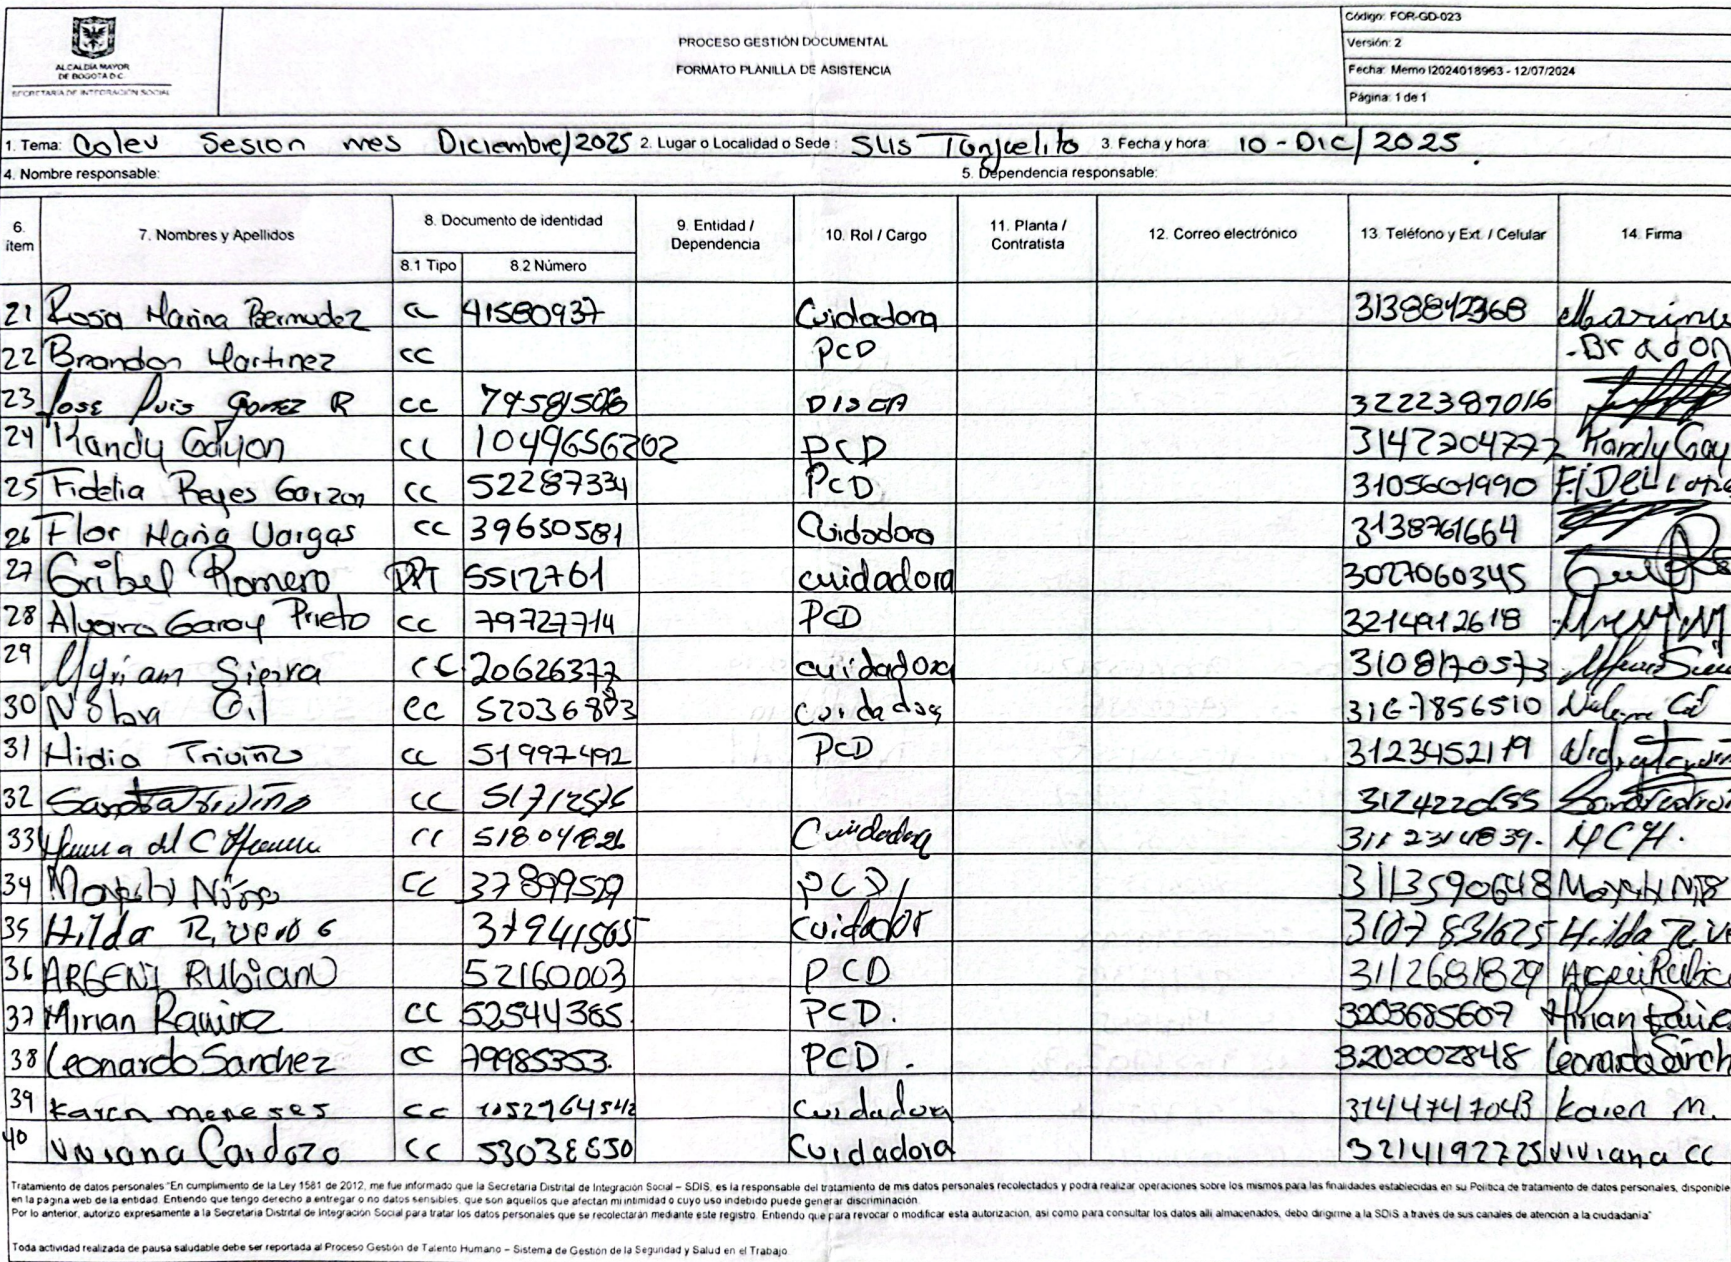 ALCALDÍA MAYOR
DE BOGOTÁ D.C.
SECRETARÍA DE INTEGRACIÓN SOCIAL
PROCESO GESTIÓN DOCUMENTAL
FORMATO PLANILLA DE ASISTENCIA
Código: FOR-GD-023
Versión: 2
Fecha: Memo I2024018963 - 12/07/2024
Página: 1 de 1
1. Tema: Colev Sesion mes Diciembre/2025 2. Lugar o Localidad o Sede: SLIS Tunjuelito 3. Fecha y hora: 10-Dic/2025.
4. Nombre responsable: 5. Dependencia responsable:
6. ítem 7. Nombres y Apellidos 8. Documento de identidad 8.1 Tipo 8.2 Número 9. Entidad / Dependencia 10. Rol / Cargo 11. Planta / Contratista 12. Correo electrónico 13. Teléfono y Ext. / Celular 14. Firma
21 Rosa Marina Bermudez CC 41580937 Cuidadora 3138842368 Marina
22 Brandon Martinez CC PCD -BradOn
23 Jose Luis Gomez R CC 79581506 3222387016
24 Kandy Gayon CC 1049656202 PCD 3142204772 Kandy Gay
25 Fidelia Reyes Garzon CC 52287334 PCD 3105601990
26 Flor Maria Vargas CC 39630581 Cuidadora 3138761664
27 Gribel Romero PPT 5512761 cuidadora 3027060345
28 Alvaro Garay Prieto CC 79727714 PCD 3214912618
29 Myriam Sierra CC 20626377 cuidadora 3108170573
30 Gil CC cuidadora 3167856510
31 Nidia Triviño CC 51997492 PCD 3123452119
32 CC 51712576
33 CC Cuidadora M C H.
34 CC 37899529 PCD 3113590648
35 Hilda Riveros 37941565 cuidador 3107831625 Hilda Rive
36 ARGENI RUBIANO 52160003 PCD 3112681829
37 Mirian Ramirez CC 52544365. PCD. 3203685607
38 Leonardo Sanchez CC 79985353. PCD. 3202002848 Leonardo Sanch
39 Karen meneses CC 1052964542 Cuidadora 3144747043 Karen M.
40 Viviana Cardozo CC 53038830 Cuidadora 3214192725 Viviana CC
Tratamiento de datos personales "En cumplimiento de la Ley 1581 de 2012, me fue informado que la Secretaría Distrital de Integración Social – SDIS, es la responsable del tratamiento de mis datos personales recolectados y podrá realizar operaciones sobre los mismos para las finalidades establecidas en su Política de tratamiento de datos personales, disponible
en la página web de la entidad. Entiendo que tengo derecho a entregar o no datos sensibles, que son aquellos que afectan mi intimidad o cuyo uso indebido puede generar discriminación.
Por lo anterior, autorizo expresamente a la Secretaría Distrital de Integración Social para tratar los datos personales que se recolectarán mediante este registro. Entiendo que para revocar o modificar esta autorización, así como para consultar los datos allí almacenados, debo dirigirme a la SDIS a través de sus canales de atención a la ciudadanía"
Toda actividad realizada de pausa saludable debe ser reportada al Proceso Gestión de Talento Humano – Sistema de Gestión de la Seguridad y Salud en el Trabajo